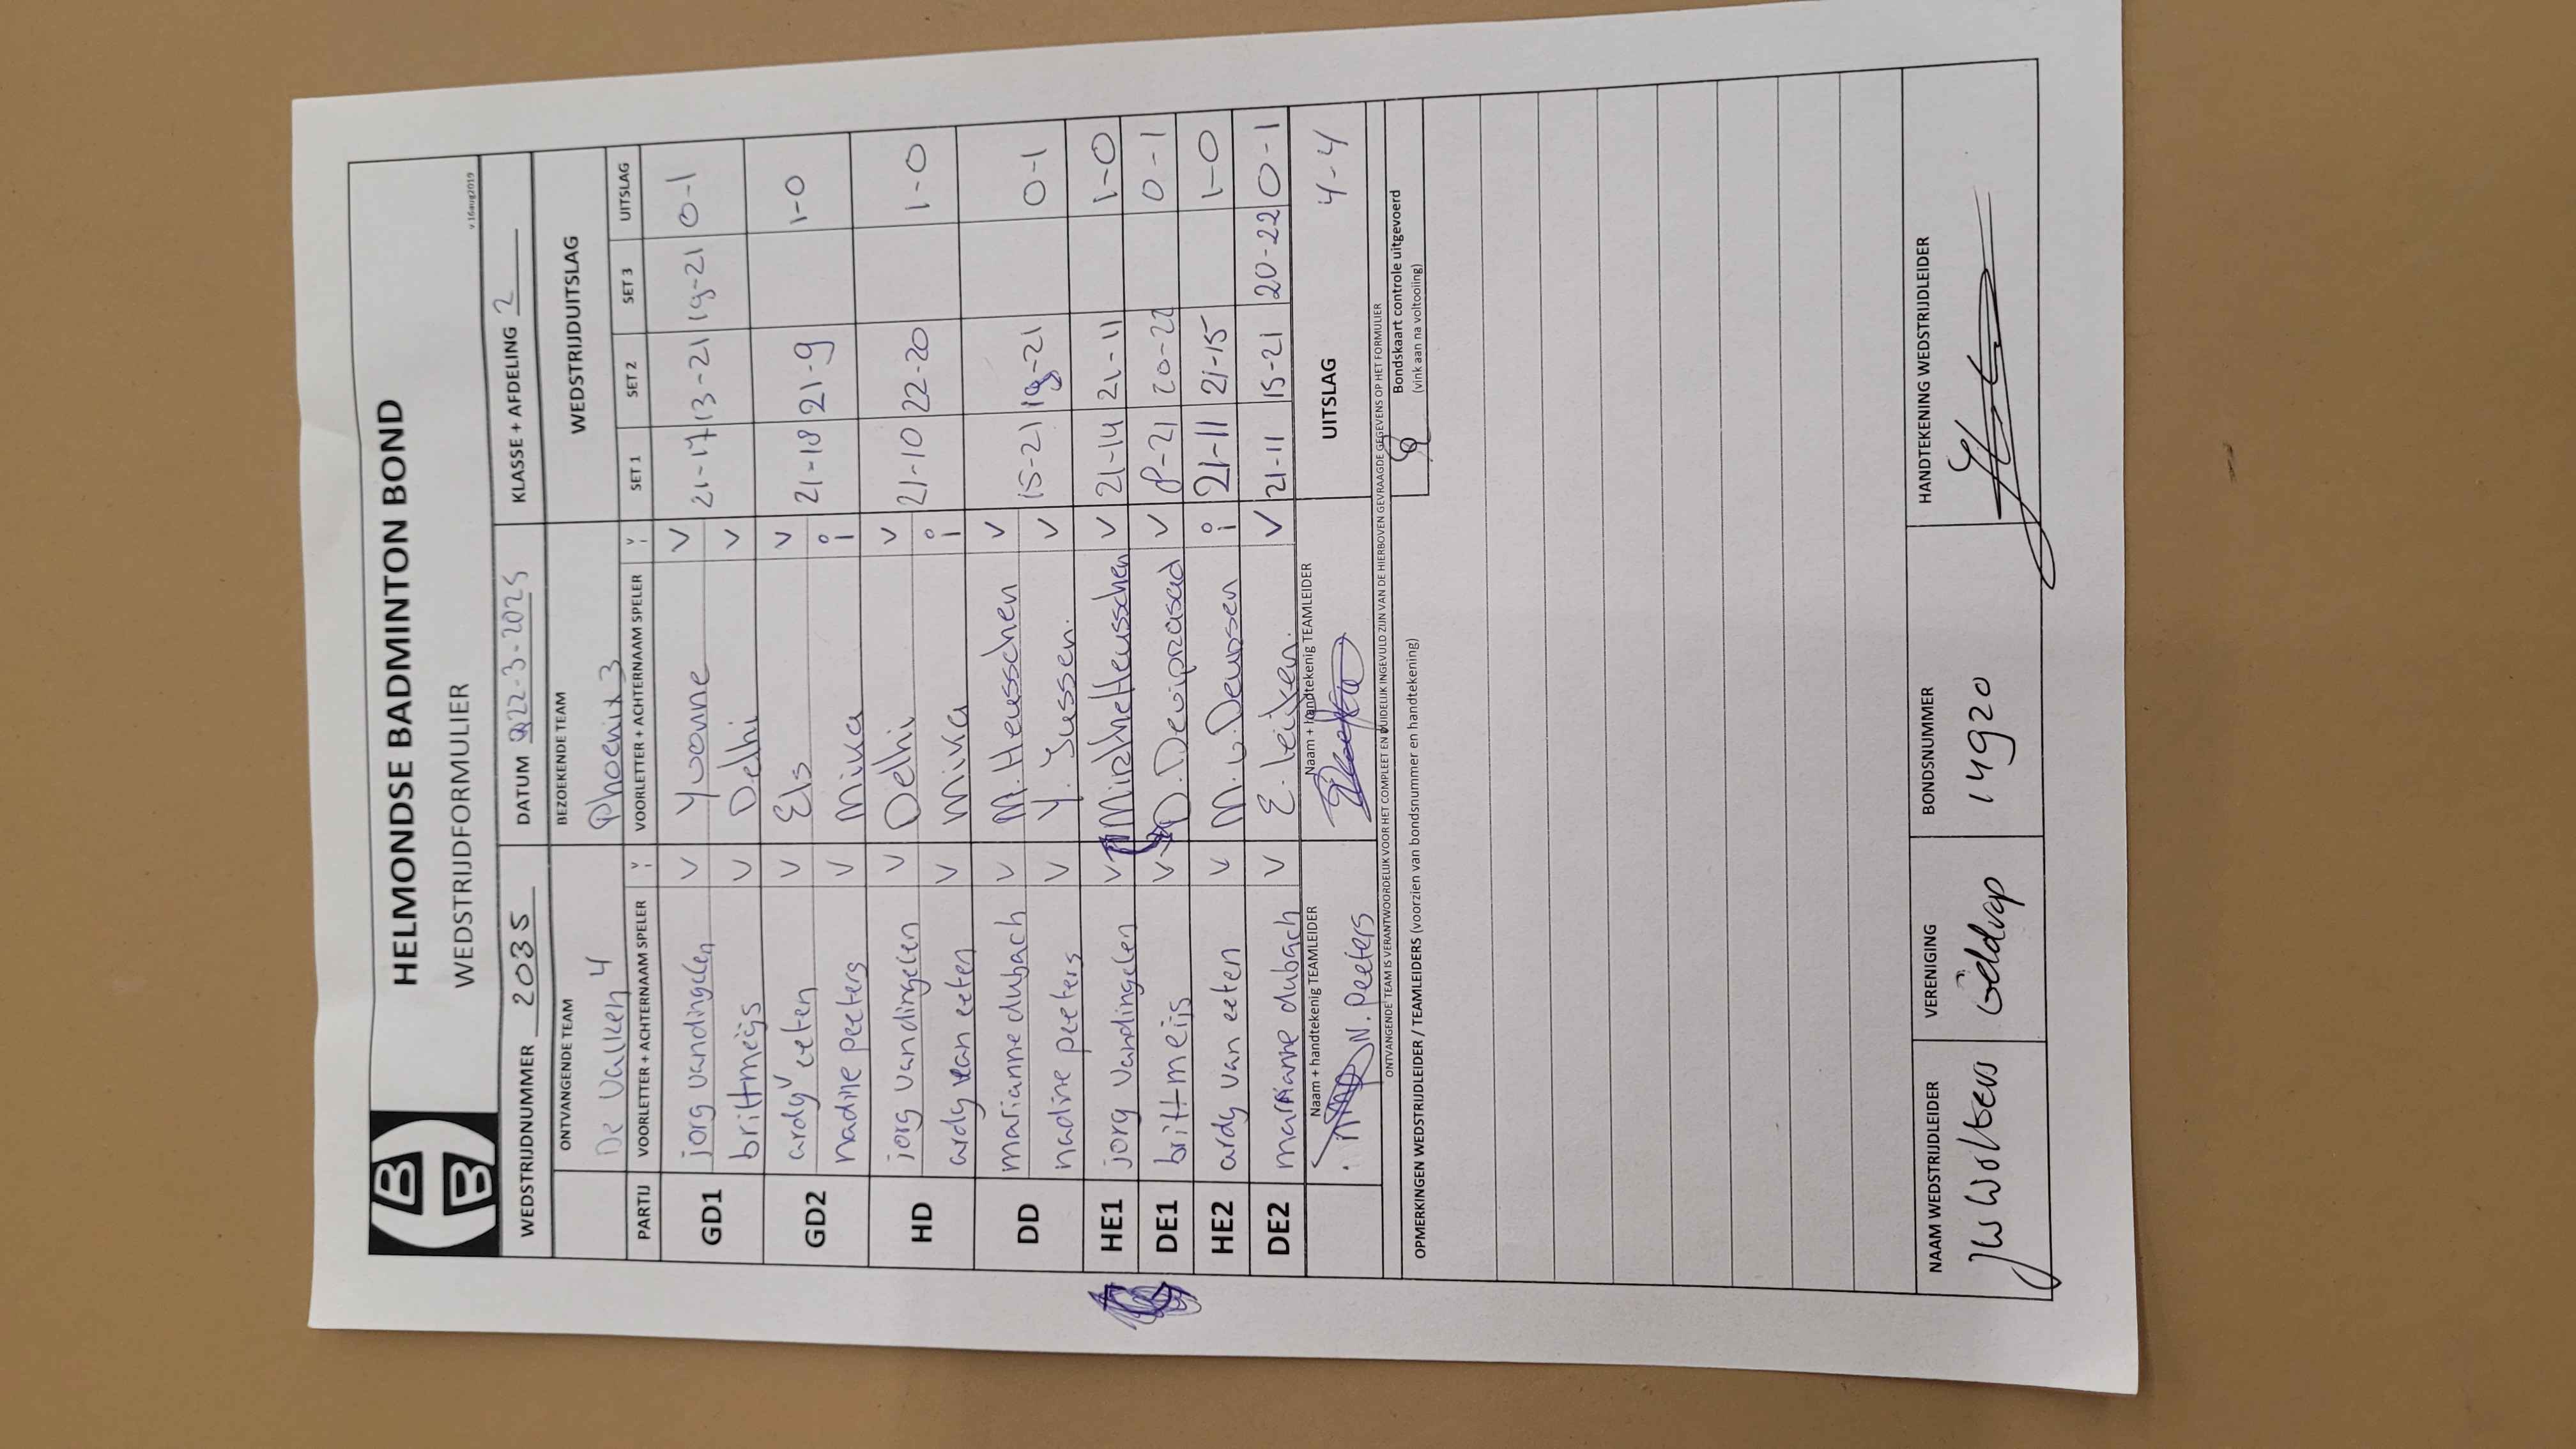 HELMONDSE BADMINTON BOND
WEDSTRIJDFORMULIER
v.16aug2019
WEDSTRIJDNUMMER 2035 DATUM 22-3-2025 KLASSE + AFDELING 2
ONTVANGENDE TEAM BEZOEKENDE TEAM WEDSTRIJDUITSLAG
De Valken 4 Phoenix 3
PARTIJ VOORLETTER + ACHTERNAAM SPELER V i VOORLETTER + ACHTERNAAM SPELER V i SET 1 SET 2 SET 3 UITSLAG
GD1 jorg vandingelen V Yvonne V 21-17 13-21 19-21 0-1
britt meijs V Delhi V
GD2 ardy v eeten V Els V 21-18 21-9 1-0
nadine peeters V Mirra i
HD jorg van dingelen V Delhi V 21-10 22-20 1-0
ardy van eeten V Mirra i
DD marianne dubach V M. Heusschen V 15-21 19-21 0-1
nadine peeters V Y. Jussen. V
HE1 jorg vandingelen V Heusschen V 21-14 21-11 1-0
DE1 britt meijs V D. Deviprasad V 8-21 20-22 0-1
HE2 ardy van eeten V M. v. Deursen i 21-11 21-15 1-0
DE2 marianne dubach V E. Leijten. V 21-11 15-21 20-22 0-1
Naam + handtekenig TEAMLEIDER Naam + handtekenig TEAMLEIDER UITSLAG 4-4
N. Peeters
ONTVANGENDE TEAM IS VERANTWOORDELIJK VOOR HET COMPLEET EN DUIDELIJK INGEVULD ZIJN VAN DE HIERBOVEN GEVRAAGDE GEGEVENS OP HET FORMULIER
Bondskaart controle uitgevoerd
(vink aan na voltooiing)
OPMERKINGEN WEDSTRIJDLEIDER / TEAMLEIDERS (voorzien van bondsnummer en handtekening)
NAAM WEDSTRIJDLEIDER VERENIGING BONDSNUMMER HANDTEKENING WEDSTRIJDLEIDER
JW Wolters Geldrop 14920